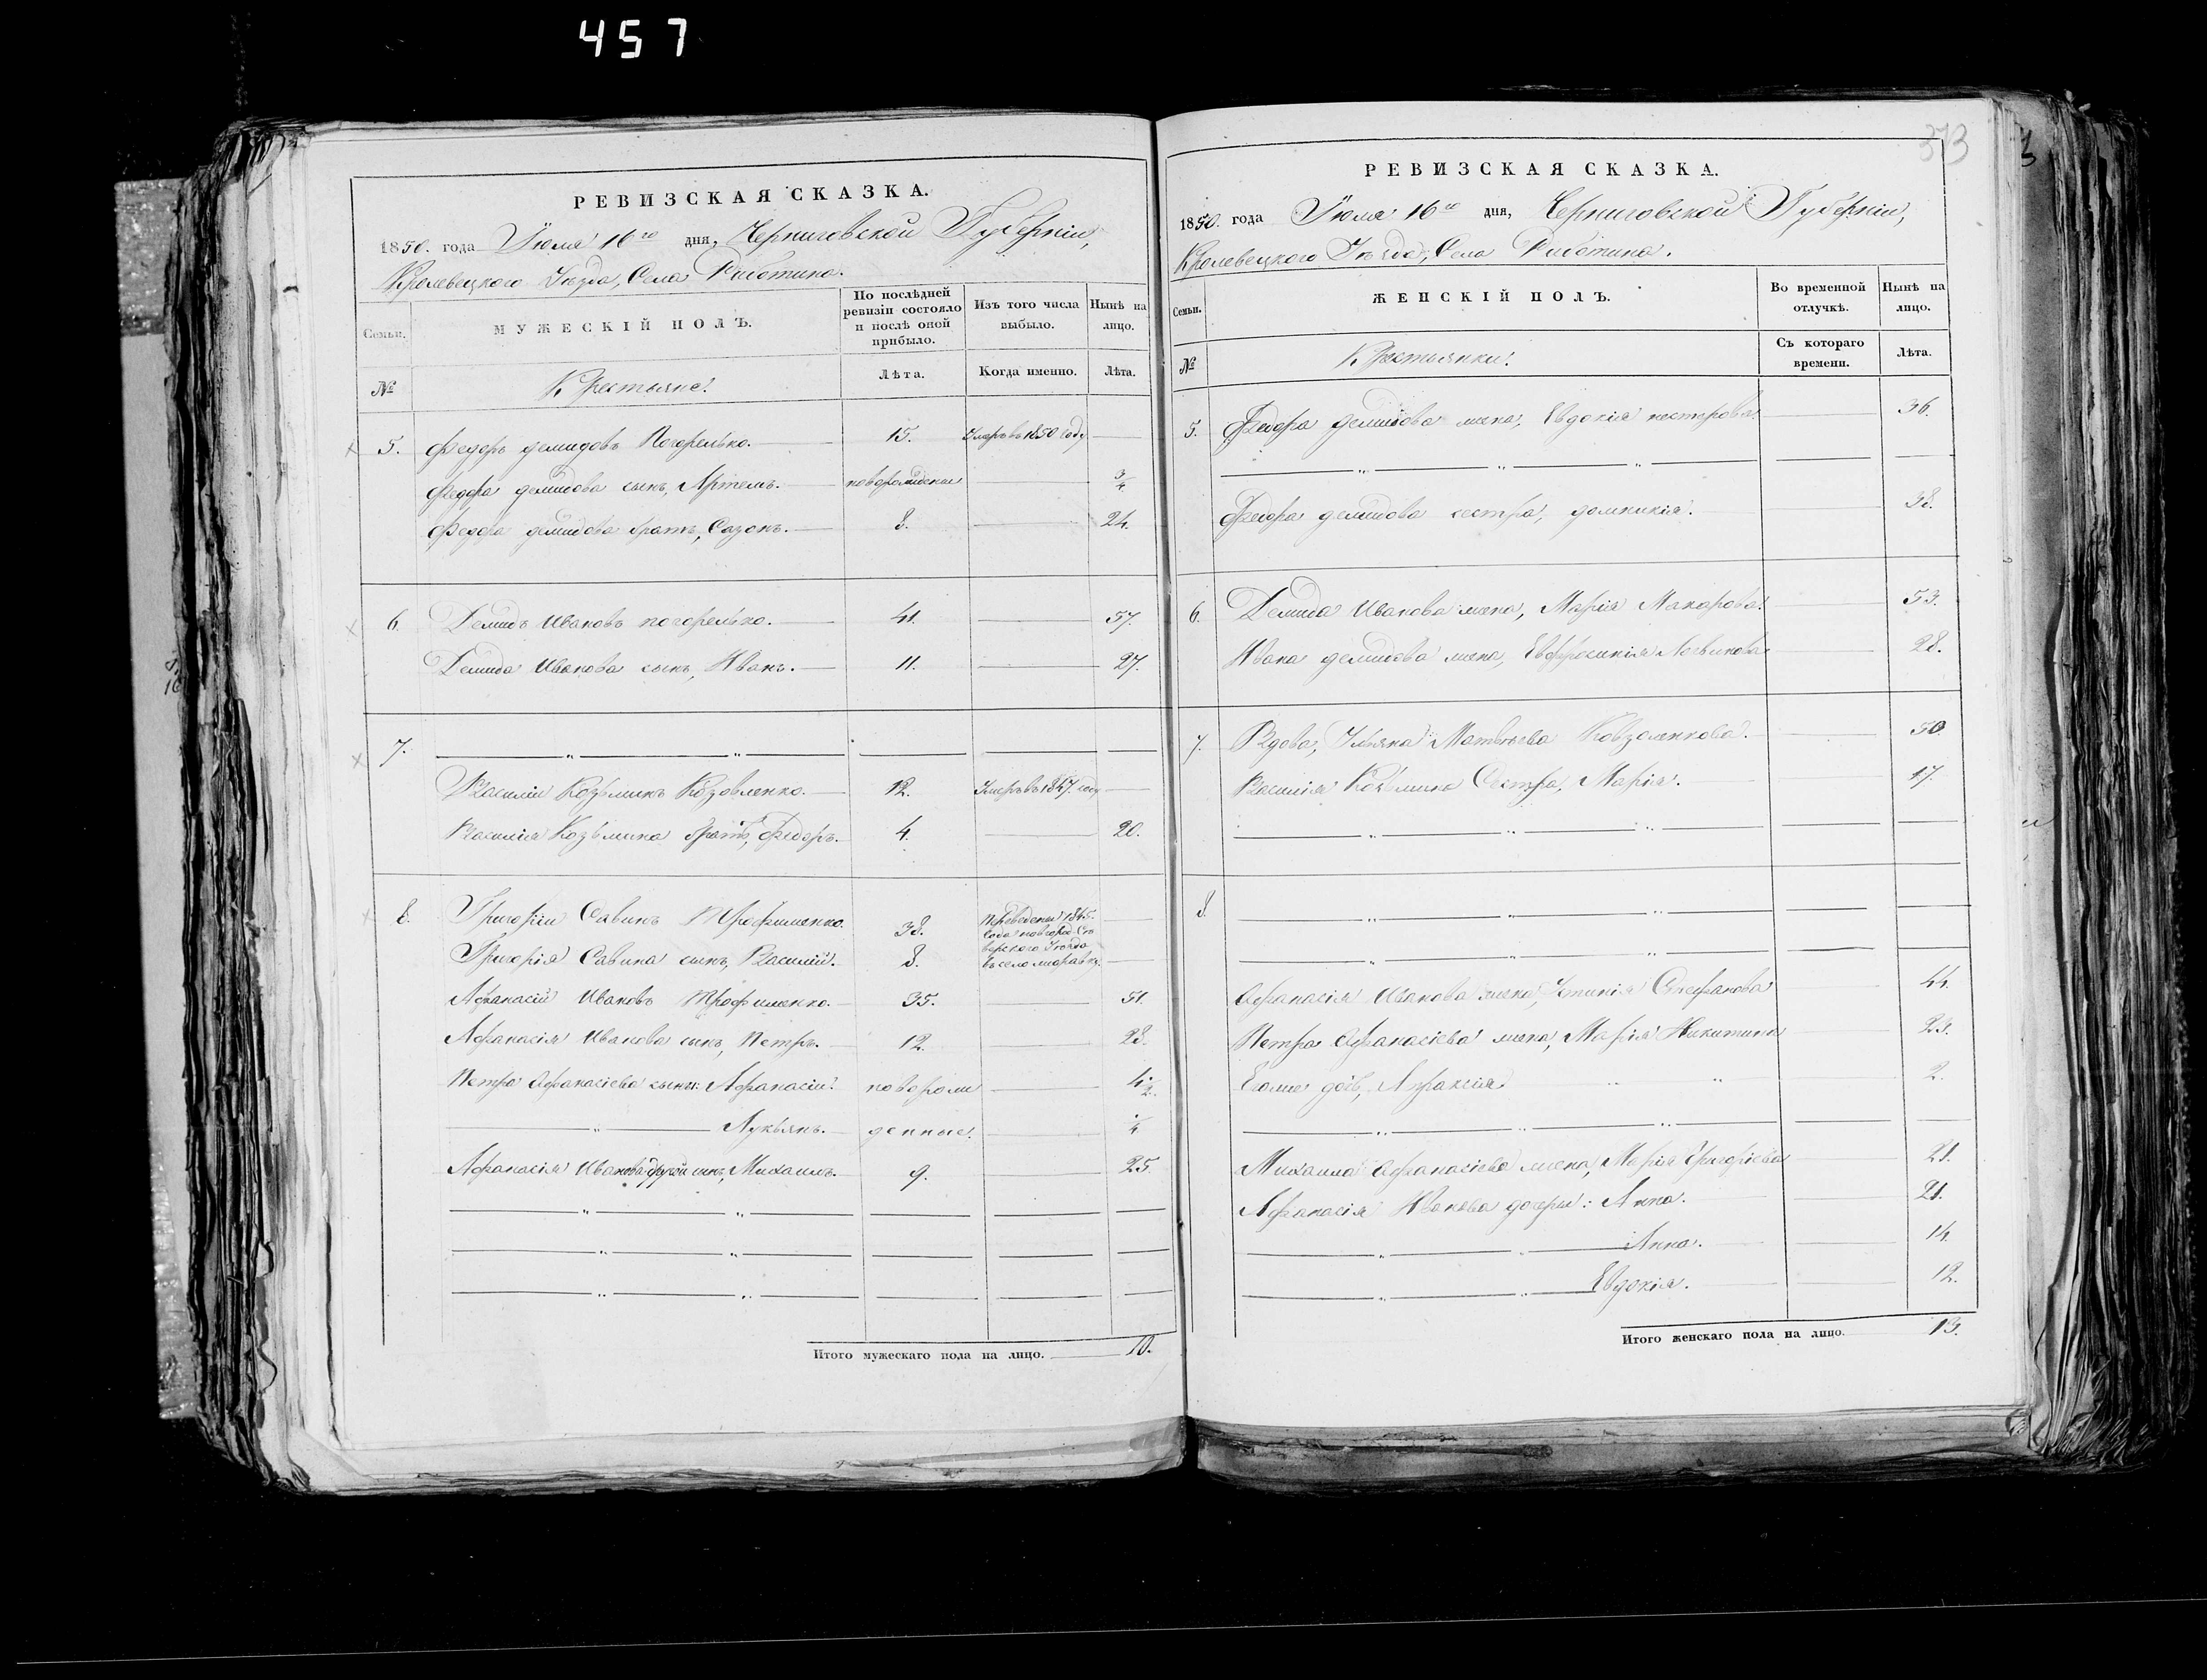 457
РЕВИЗСКАЯ СКАЗКА.
1850. года Іюля 16го дня, Черниговской Губерніи,
Кролевецкого Уѣзда, Села Работина.
Семьи. МУЖЕСКІЙ ПОЛЪ. По послѣдней ревизіи состояло и послѣ оной прибыло. Изъ того числа выбыло. Нынѣ на лицо.
№ Крестьяне: Лѣта. Когда именно. Лѣта.
5. Федоръ демидовъ Погорелько. 15. Умеръ въ 1850 году
Федора демидова сынъ, Артемъ. новорожденъ 3/4
Федора демидова братъ, Сазонъ. 8. 24.
6. Демидъ Ивановъ погорелько. 41. 57.
Демида Иванова сынъ, Иванъ. 11. 27.
7.
Василій Козьминъ Козовленко. 12. Умеръ въ 1847. году
Василія Козьмина братъ, Федоръ. 4. 20.
8. Григорій Савинъ Трофименко. 38. Переведены 1845.
года новгород Сѣ
Григорія Савина сынъ, Василій. 8. верского Уѣзда
въ село
Афанасій Ивановъ Трофименко. 35. 51.
Афанасія Иванова сынъ, Петръ. 12. 28.
Петра Афанасіева сыны: Афанасій. новорож
Лукьянъ. денные.
Афанасія Иванова другой сынъ, Михаилъ. 9. 25.
Итого мужескаго пола на лицо. 10.
373
РЕВИЗСКАЯ СКАЗКА.
1850. года Іюля 16го дня, Черниговской Губерніи,
Кролевецкого Уѣзда, Села Работина.
Семьи. ЖЕНСКІЙ ПОЛЪ. Во временной отлучкѣ. Нынѣ на лицо.
№ Крестьянки: Съ котораго времени. Лѣта.
5. Федора демидова жена, Евдокія нестерова. 36.
Федора демидова сестра, домникія. 38.
6. Демида Иванова жена, Марія Макарова. 53.
Ивана демидова жена, Евфросинія Логвинова 28.
7. Вдова, Ульяна Матвѣева Ковзоленкова. 50
Василія Козьмина Сестра, Марія. 17.
8.
Афанасія Иванова жена, Устинія Стефанова 44.
Петра Афанасіева жена, Марія Никитина 23.
Егоже дочь, 2.
Михаила Афанасіева жена, Марія Григоріева 21.
Афанасія Иванова дочери: Анна. 21.
Анна. 14.
Евдокія. 12.
Итого женскаго пола на лицо. 13.